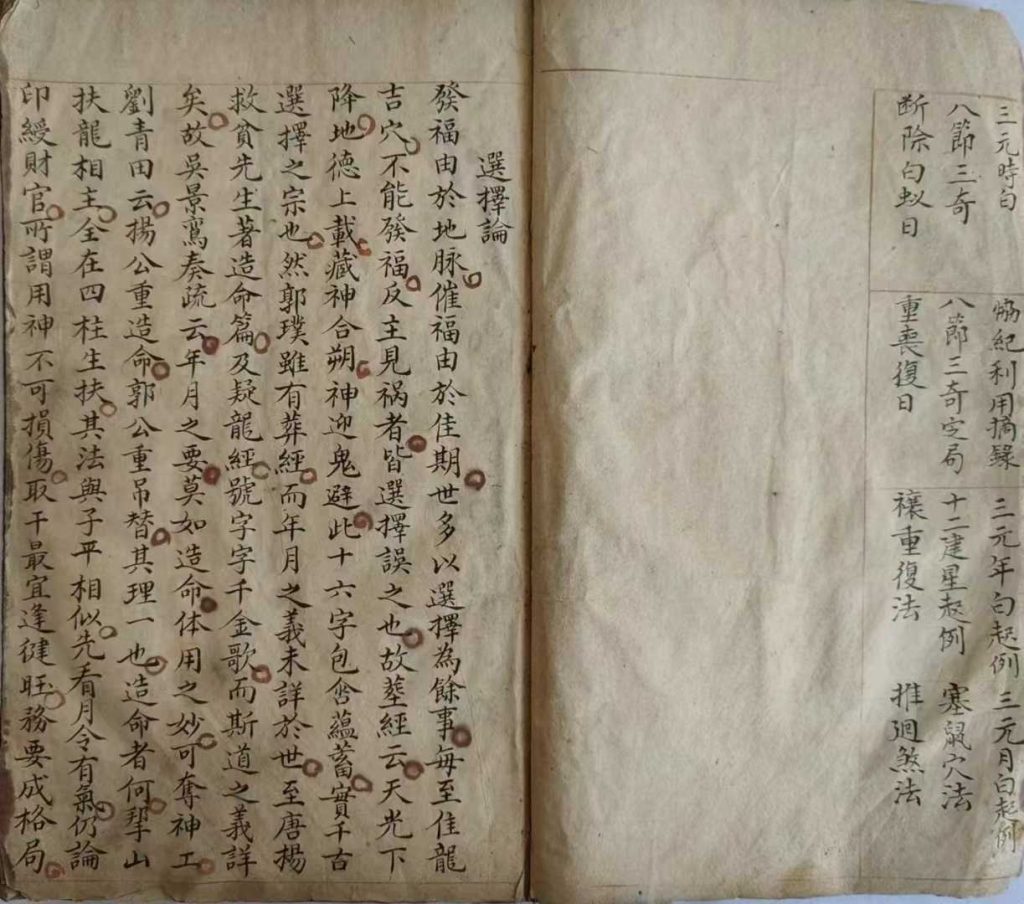 三元時白 恊紀利用摘錄 三元年白起例 三元月白起例
八節三奇 八節三奇定局 十二建星起例 塞鼠穴法
断除白蚁日 重喪復日 禳重復法 推廻煞法
選擇論
發福由於地脉催福由於佳期世多以選擇為餘事每至佳龍
吉穴不能發福反主見祸者皆選擇誤之也故塟經云天光下
降地德上載藏神合朔神迎鬼避此十六字包含蘊蓄實千古
選擇之宗也然郭璞雖有葬經而年月之義未詳於世至唐楊
救貧先生著造命篇及疑龍經號字字千金歌而斯道之義詳
矣故吳景鸞奏疏云年月之要莫如造命体用之妙可奪神工
劉青田云揚公重造命郭公重吊替其理一也造命者何挈山
扶龍相主全在四柱生扶其法與子平相似先看月令有氣仍論
印綬財官所謂用神不可損傷取干最宜逢健旺務要成格局